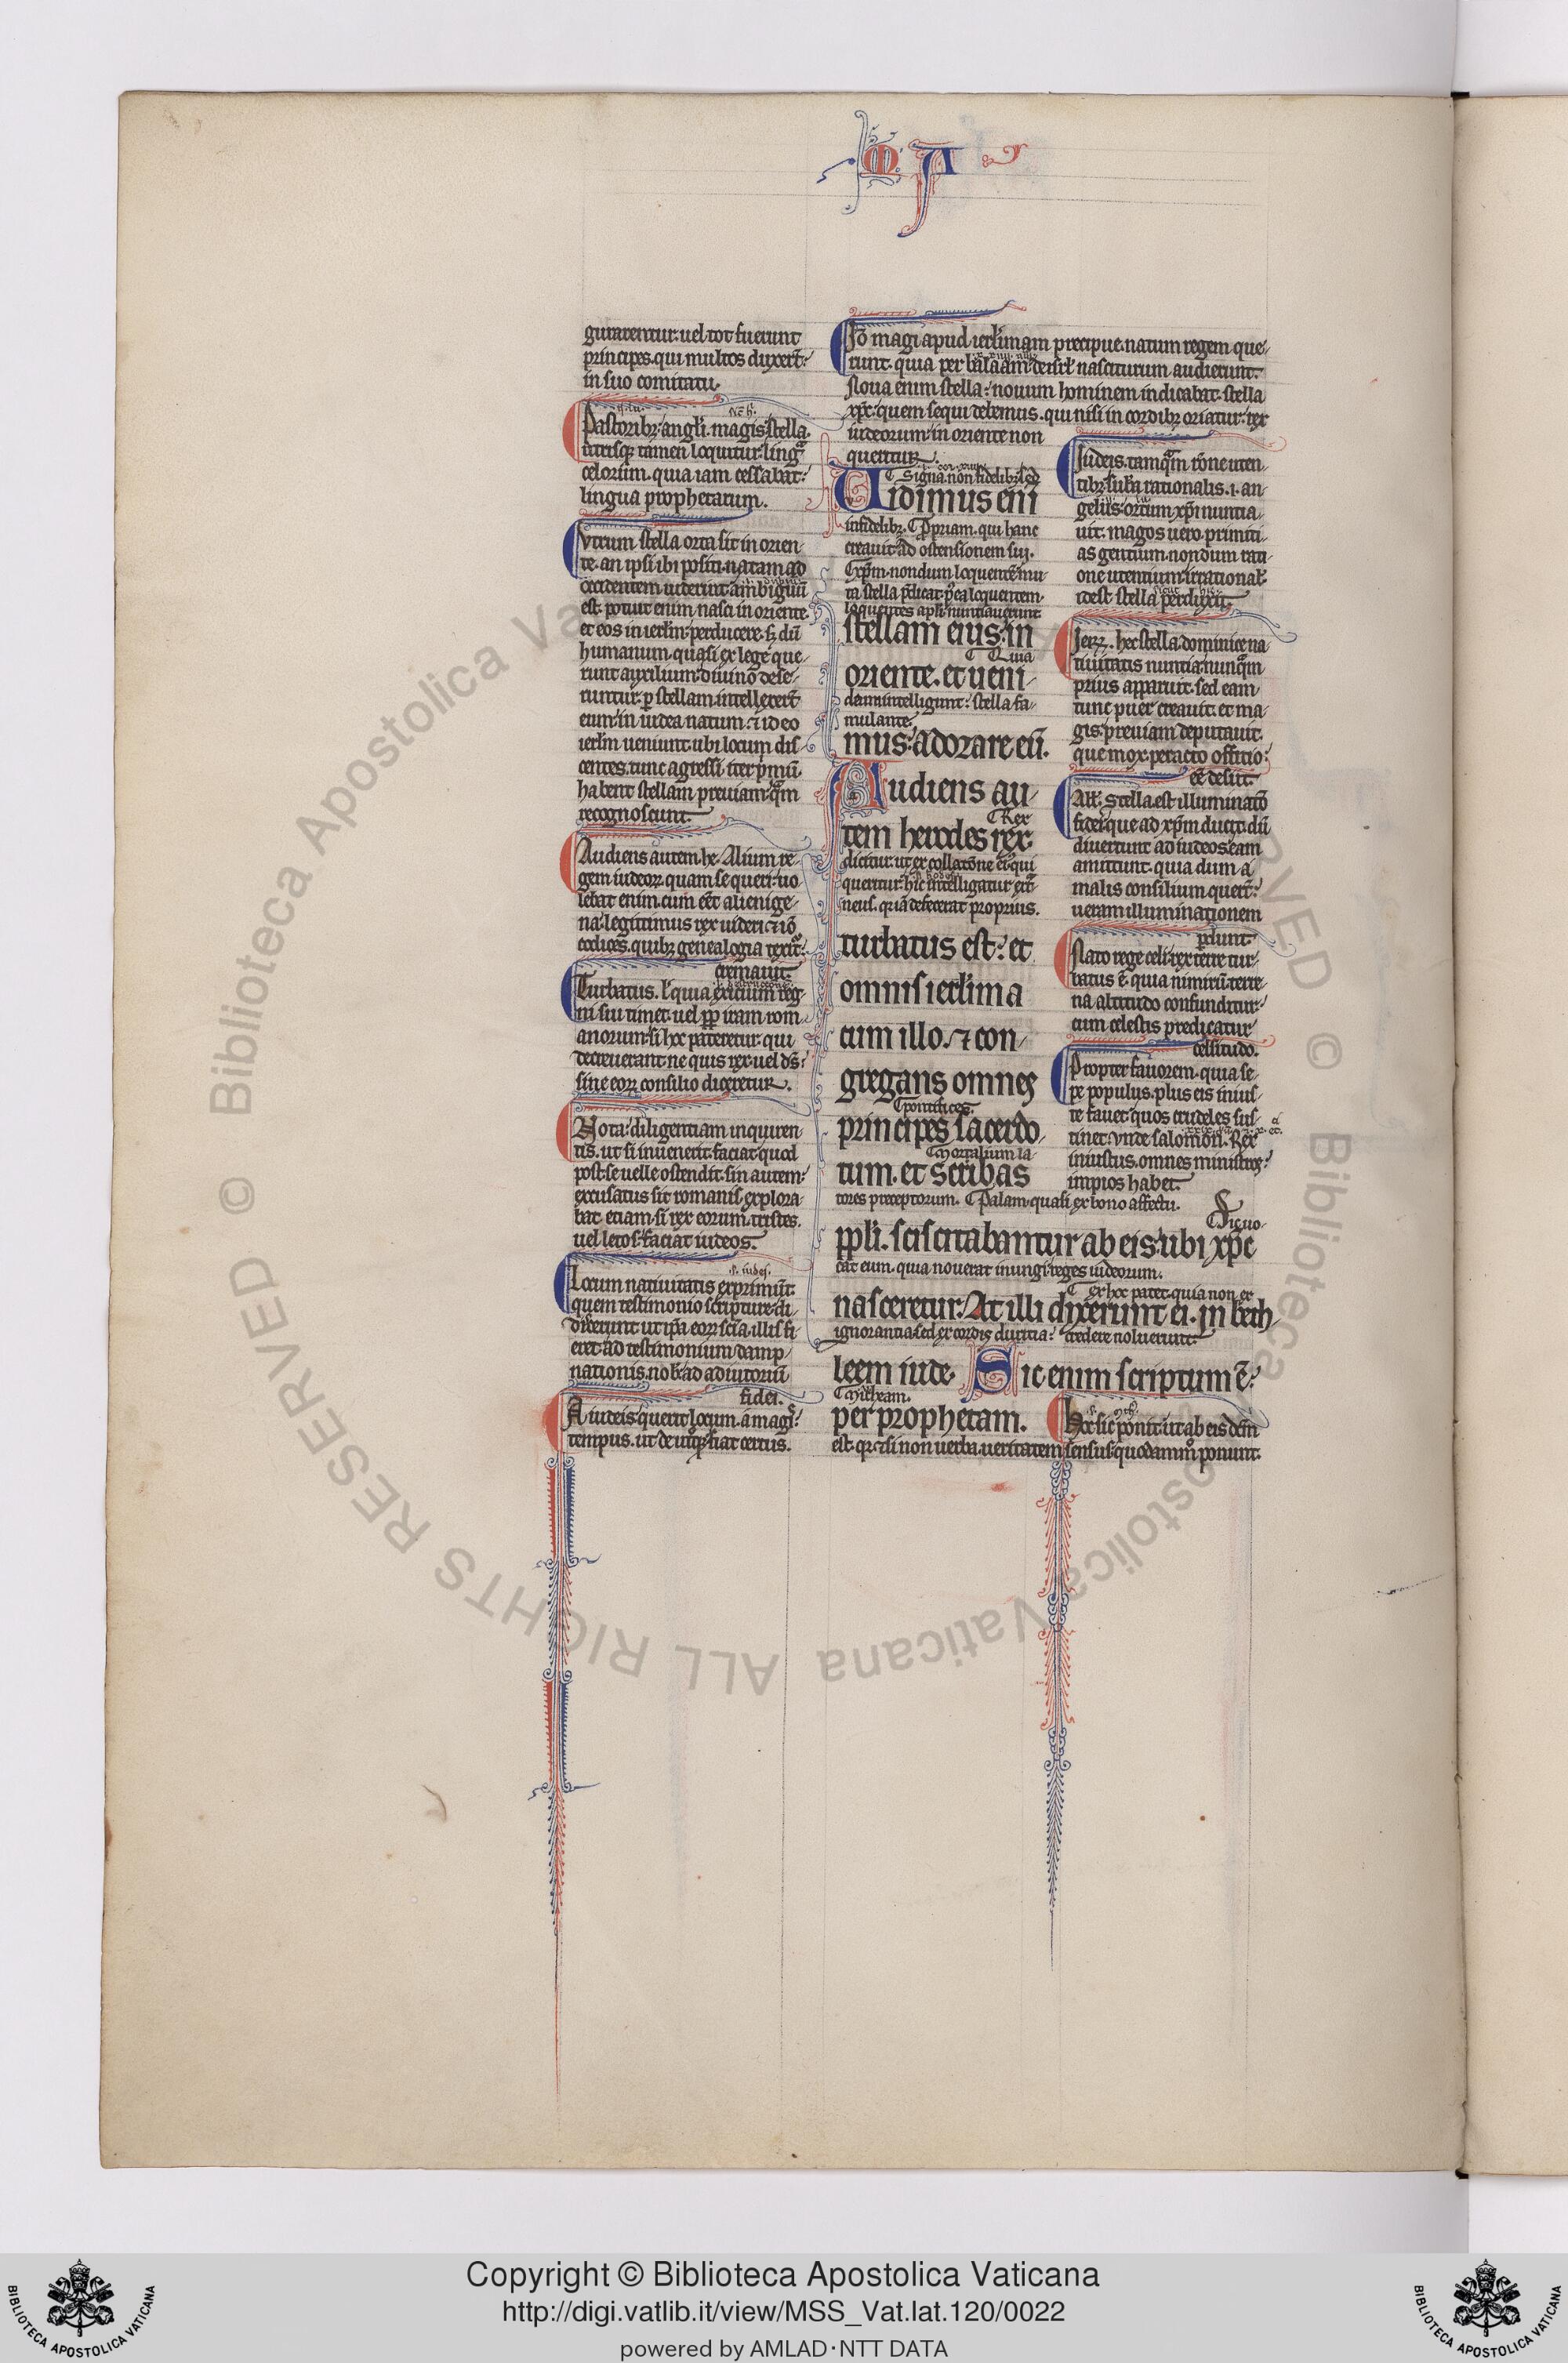 M A
gurarentur. uel tot fuerunt
principes. qui multos duxert̃:
in suo comitatu.
Pastoribꝫ angl̃i. magis stella.
utrisqꝫ tamen loquitur lingᷓ
celorum. quia iam cessabat:
lingua prophetarum.
Vtrum stella orta sit in orien-
te. an ipsi ibi positi. natam ad
occidentem uiderint ambiguũ
est. potuit enim nasci in oriente.
et eos in ierl̃m perducere. sꝫ dũ
humanum quasi ex lege que-
runt auxilium: diuino dese-
runtur. ꝑ stellam intellexert̃
eum in iudea natum. ⁊ ideo
ierl̃m ueniunt. ubi locum dis-
centes. tunc agressi iter p̃mũ.
habent stellam preuiam: qᷓm
recognoscunt.
Audiens autem hẽ. Alium re-
gem iudeoꝝ quam se queri. uo-
lebat enim cum eẽt alienige-
na: legitimus rex uideri. ⁊ iõ
codices. quibꝫ genealogia texit̃:
cremauit.
Turbatus. ł quia excicium reg-
ni sui timet. uel ꝓꝑ iram rom-
anorum. si hoc pateretur. qui
decreuerant ne quis rex uel dñs:
sine eoꝝ consilio diceretur.
Nota: diligentiam inquiren-
tis. ut si inuenerit: faciat quod
post se uelle ostendit. sin autem:
excusatus sit romanis. explora-
bat etiam. si rex eorum. tristes.
uel letos: faciat iudeos.
s. iudei.
Locum natiuitatis exprimũt.
quem testimonio scripture di-
dicerunt. ut ip̃a eoꝝ scĩa. illis fi-
eret ad testimonium damp-
nationis. nob̃. ad adiutoriũ
fidei.
A iudeis querit locum. a magis:
tempus. ut de utroqꝫ fiat certus.
Iõ magi apud ierl̃imam precipue. natum regem que-
runt. quia per balaam de isrł nasciturum audierunt.
Noua enim stella: nouum hominem indicabat. stella
xp̃c: quem sequi debemus. qui nisi in cordibꝫ oriatur: rex
iudeorum: in oriente non
queritur.
Signa. non fidelibꝫ. sed
Uidimus enĩ
infidelibꝫ. Propriam. qui hanc
creauit: ad ostensionem sui.
Xp̃m. nondum loquentẽ: mu-
ta stella p̃dicat. p̃ea loquentem.
loquentes apl̃i nuntiauerunt.
stellam eius in
Quia
oriente. et ueni-
deum intelligunt: stella fa-
mulante.
mus: adorare eũ.
Audiens au-
Rex
tem herodes rex:
dicitur. ut ex collatõne ei9 qui
queritur hic intelligatur ext̃-
neus. quia defecerat proprius.
turbatus est: et
omnis ierl̃ima
cum illo. ⁊ con-
gregans omnes
pontifices.
principes sacerdo-
Mortalium la-
tum. et scribas
tores preceptorum. Palam. quasi ex bono affectu.
Sic uo-
ppl̃i. sciscitabantur ab eis: ubi xp̃c
cat eum. quia nouerat inungi reges iudeorum.
Ex hoc patet. quia non ex
nasceretur: At illi dixerunt ei. Jn beth-
ignorantia. sed ex cordis duritia: credere noluerunt.
leem iude. Sic enim scriptum ẽ:
Micheam.
per prophetam.
est. qꝛ ⁊si non uerba. ueritatem sensus: quodammodo ponunt.
Iudeis. tamqᷓm rõne uten-
tibꝫ. sub̃a rationalis. i. an-
gelus: ortum xp̃i nuntia-
uit. magos uero primiti-
as gentium. nondum rati-
one utentium: irrational̃.
idest stella perduxit.
Jeꝝ. hec stella. dominice na-
tiuitatis nuntia: nunqᷓm
prius apparuit. sed eam
tunc puer creauit. et ma-
gis: preuiam deputauit.
que mox peracto officio:
eẽ desiit.
All̃. Stella est illuminatõ
fidei. que ad xp̃m ducit. dũ
diuertunt ad iudeos: eam
amittunt. quia dum a
malis consilium quert̃:
ueram illuminationem
ꝑdunt.
Nato rege celi. rex terre tur-
batus ẽ. quia nimirũ terre-
na altitudo confunditur:
cum celestis predicatur
celsitudo.
Propter fauorem. quia se-
pe populus. plus eis inius-
te fauet. quos crudeles sus-
tinet. vnde salomon. Rex
iniustus. omnes ministros:
impios habet.
Hec sic ponit. ut ab eis dc̃m
Copyright © Biblioteca Apostolica Vaticana
http://digi.vatlib.it/view/MSS_Vat.lat.120/0022
powered by AMLAD·NTT DATA
BIBLIOTECA APOSTOLICA VATICANA
BIBLIOTECA APOSTOLICA VATICANA
© Biblioteca Apostolica Vaticana ALL RIGHTS RESERVED